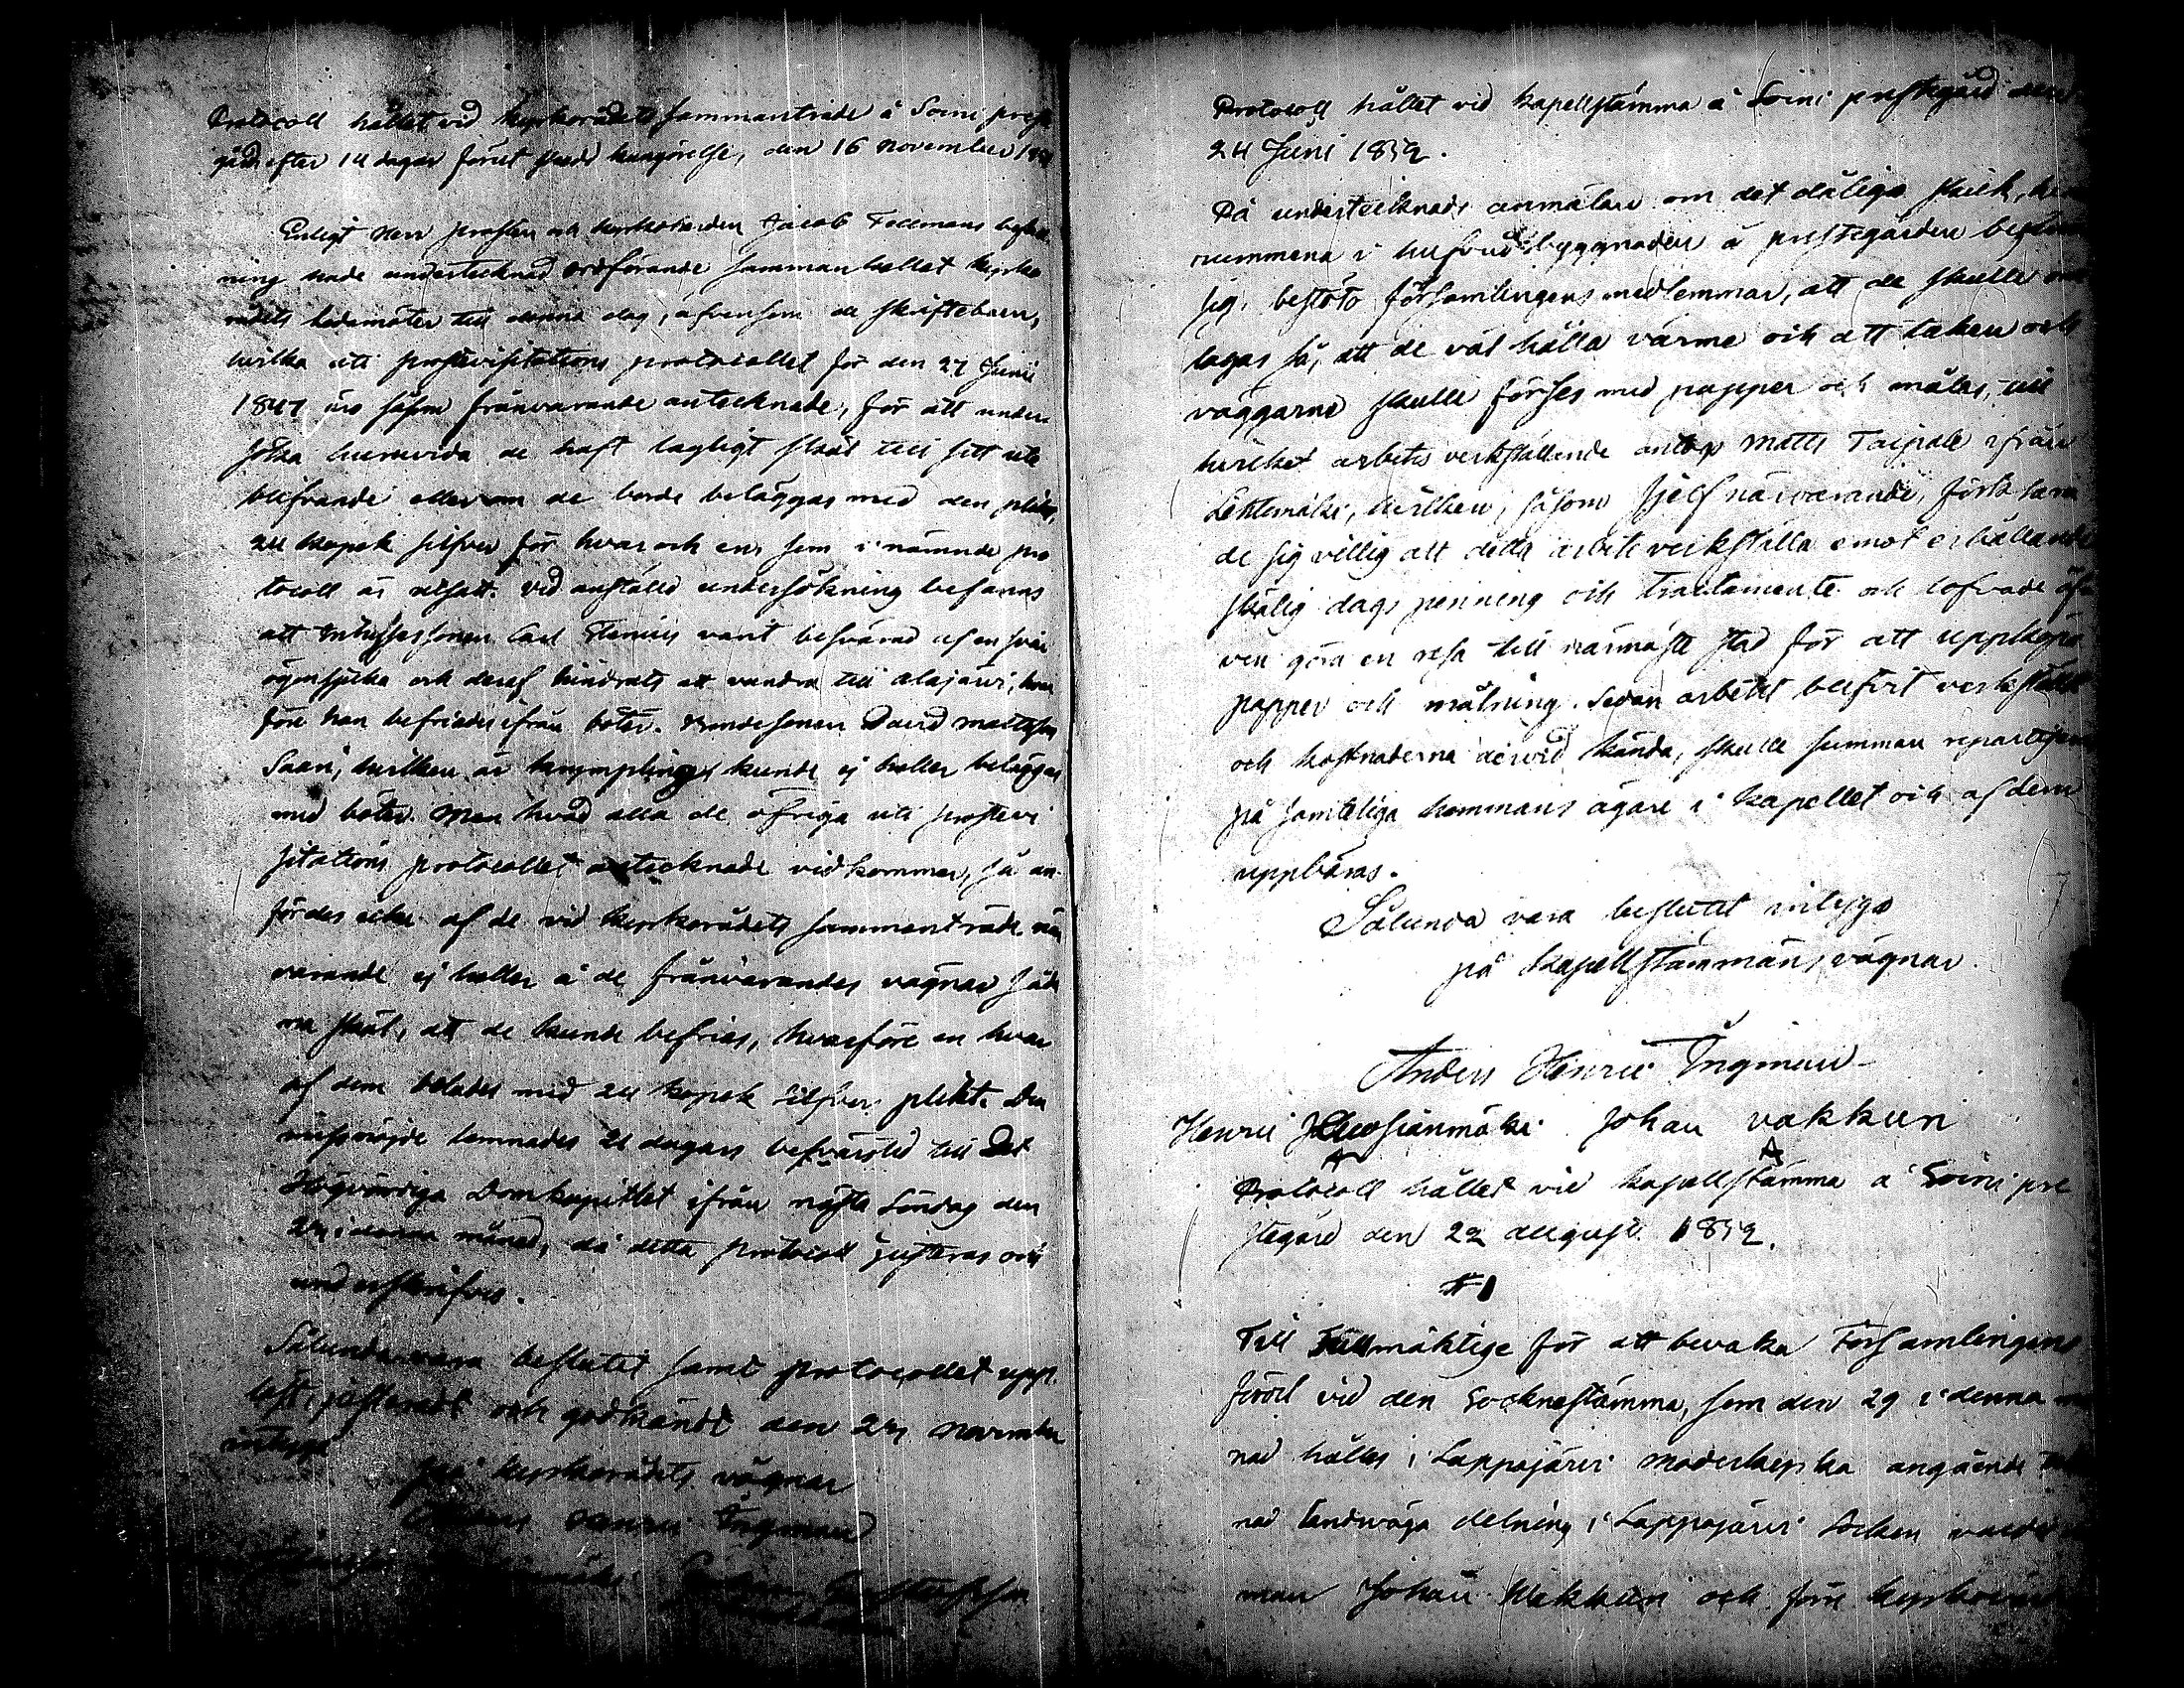 Protocoll hållet vid kyrkorådets sammanträde å Soini prest
gård efter 14 dagar förut skedd kungörelse, den 16 November
Enligt Herr Prosten och kyrkoherden Jacob Fellmans
ning hade undertecknad ordförande sammankallat kyrko
rådets ledamöter till denna dag, äfvensom de skriftebarn,
hvilka uti prostevisitations protocollet för den 27 Junii
1847 äro såsom frånvarande antecknade, för att under
söka huruvida de haft lagligt skäl till sitt ute
blifvande eller om de borde beläggas med den plikt,
24 kopek silfver för hvar och en, som i nämnde pro
tocoll är utsatt. Vid anställd undersökning befanns
att Carl Elenius varit besvärad af en svår
ögonsjuka och deraf hindrats att vandra till Alajärvi, hvar
före han befriades ifrån böter. Bondesonen David Mattsson
Saari, hvilken är krympling, kunde ej heller beläggas
med böter. Men hvad alla de öfriga uti prostevi
sitations protocollet antecknade vidkommer, så an
fördes icke af de vid kyrkorådets sammanträde när
varande ej heller å de frånvarandes vägnar såda
na skäl, att de kunde befrias, hvarföre en hvar
af dem belades med 24 kopek silfver plikt. Den
missnöjde lemnades 21 dagars besvärstid till Det
Högvördiga Domkapitlet ifrån nästa Söndag den
24 i denna månad, då detta protocoll justeras och
underskrifves.
Sålunda vara beslutit samt protocollet upp
läst, justeradt och godkändt den 24 November
intyga
på kyrkorådets vägnar
Anders Henric Ingman
Protocoll hållet vid kapellstämma å Soini prestgård den
24 Juni 1852.
På undertecknads anmälan om det dåliga skick,
rummena i hufvudbyggnaden å prestegården
sig, beslöto församlingens medlemmar, att de skulle om
lagas så, att de väl hålla värme och att taken och
väggarne skulle förses med papper och målas, till
hvilket arbetes verkställande antogs Matts Taipale ifrån
Lehtimäki, hvilken, såsom sjelf närvarande, förkla
de sig villig att detta arbete verkställa emot erhållande
skälig dagspenning och tractamente och lofvade äf
ven göra en resa till närmaste stad för att uppköpa
papper och målning. Sedan arbetet blifvit verkställt
och kostnaderna dervid kända, skulle summan repartijeras
på samteliga hemmans ägare i kapellet och af dem
uppbäras.
Sålunda vara beslutit intyga
på kapellstämmans vägnar
Anders Henric Ingman
Henric Johan Vakkuri
Protocoll hållet vid kapellstämma å Soini pre
stegård den 22 august. 1852.
# 1
Till Fullmäktige för att bevaka Församlingens
fördel vid den Socknestämma, som den 29 i denna må
nad hålles i Lappajärvi moderkyrka angående
nad landsväga delning i Lappajärvi Socken
man Johan Wakkuri och förre kyrkovärd